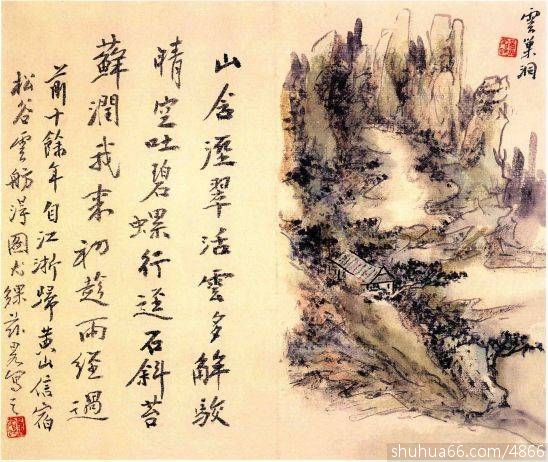 雲巢洞
山含溼翠活雲多解駮
晴空吐碧螺行逕石斜苔
蘚潤我來初趁雨經過
前十餘年自江浙歸黃山信宿
松谷雲舫得圖茲寫之
shuhua66.com/4866